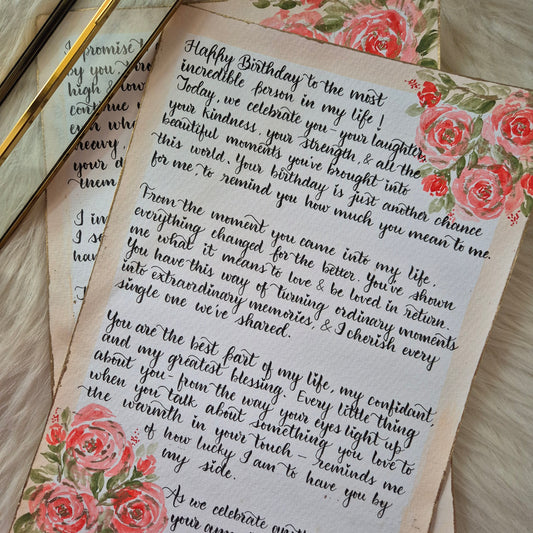 Happy Birthday to the most
incredible person in my life!
Today, we celebrate you - your laughter,
your kindness, your strength, & all the
beautiful moments you've brought into
this world. Your birthday is just another chance
for me to remind you how much you mean to me.
From the moment you came into my life,
everything changed for the better. You've shown
me what it means to love & be loved in return.
You have this way of turning ordinary moments
into extraordinary memories, & I cherish every
single one we've shared.
You are the best part of my life, my confidant,
and my greatest blessing. Every little thing
about you - from the way your eyes light up
when you talk about something you love to
the warmth in your touch - reminds me
of how lucky I am to have you by
my side.
As we celebrate
your
I promise
by you
high & low
continue
even wha
heavy,
your d
I
I
hav